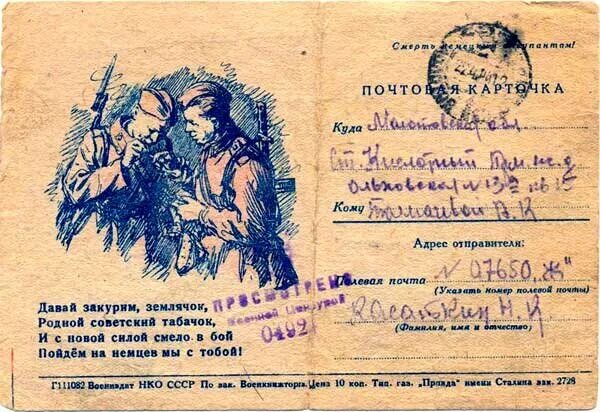 Смерть немецким оккупантам!
ПОЧТОВАЯ КАРТОЧКА
Куда Молотовская обл
Ст. Кислотный
Ольховская № 13
Кому В. К
Адрес отправителя:
Полевая почта № 07650 „Ж“
(Указать номер полевой почты)
Н. К.
(Фамилия, имя и отчество)
ПРОСМОТРЕНО
Военной Цензурой
0492
Давай закурим, землячок,
Родной советский табачок,
И с новой силой смело в бой
Пойдём на немцев мы с тобой!
Г111082 Воениздат НКО СССР По зак. Военкнижторга. Цена 10 коп. Тип. газ. „Правда“ имени Сталина зак. 2728